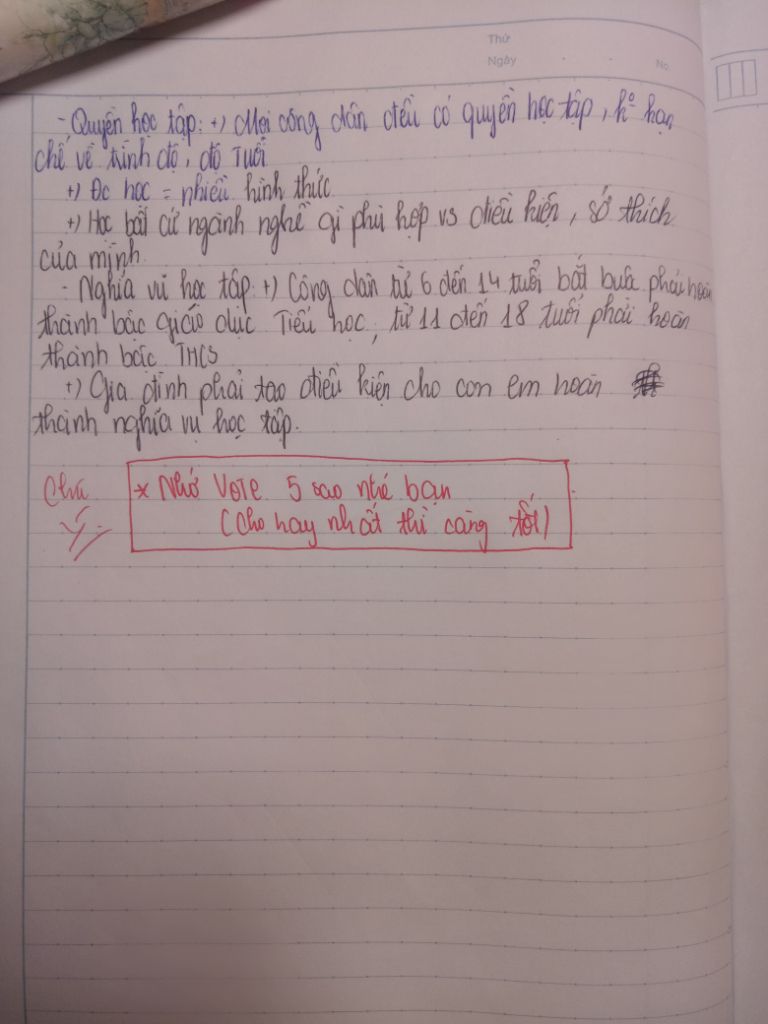 Thứ
Ngày . . No.
- Quyền học tập: +) Mọi công dân đều có quyền học tập, k° hạn
chế về trình độ, độ tuổi
+) Đc học = nhiều hình thức
+) Học bất cứ ngành nghề gì phù hợp vs điều kiện, sở thích
của mình
- Nghĩa vụ học tập: +) Công dân từ 6 đến 14 tuổi bắt buộc phải hoàn
thành bậc giáo dục Tiểu học, từ 11 đến 18 tuổi phải hoàn
thành bậc THCS
+) Gia đình phải tạo điều kiện cho con em hoàn
thành nghĩa vụ học tập.
Chú * Nhớ Vote 5 sao nhé bạn
ý (Cho hay nhất thì càng tốt)